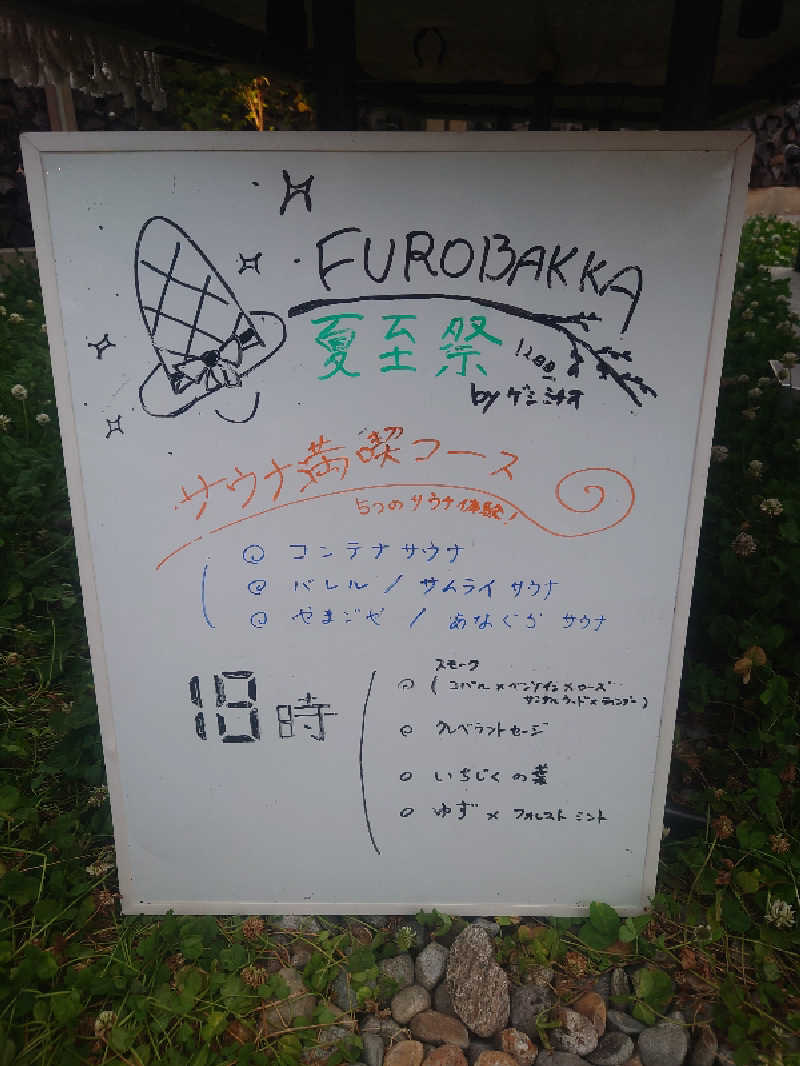 FUROBAKKA
夏至祭
by ゲンミナオ
サウナ満喫コース
5つのサウナ体験!
コンテナサウナ
バレル / サムライサウナ
やまごや / あなぐらサウナ
18時
スモーク
(コパル×ベンゾイン×ローズ
サンダルウッド×ラベンダー)
クレベラントセージ
いちじくの葉
ゆず×フォレストミント